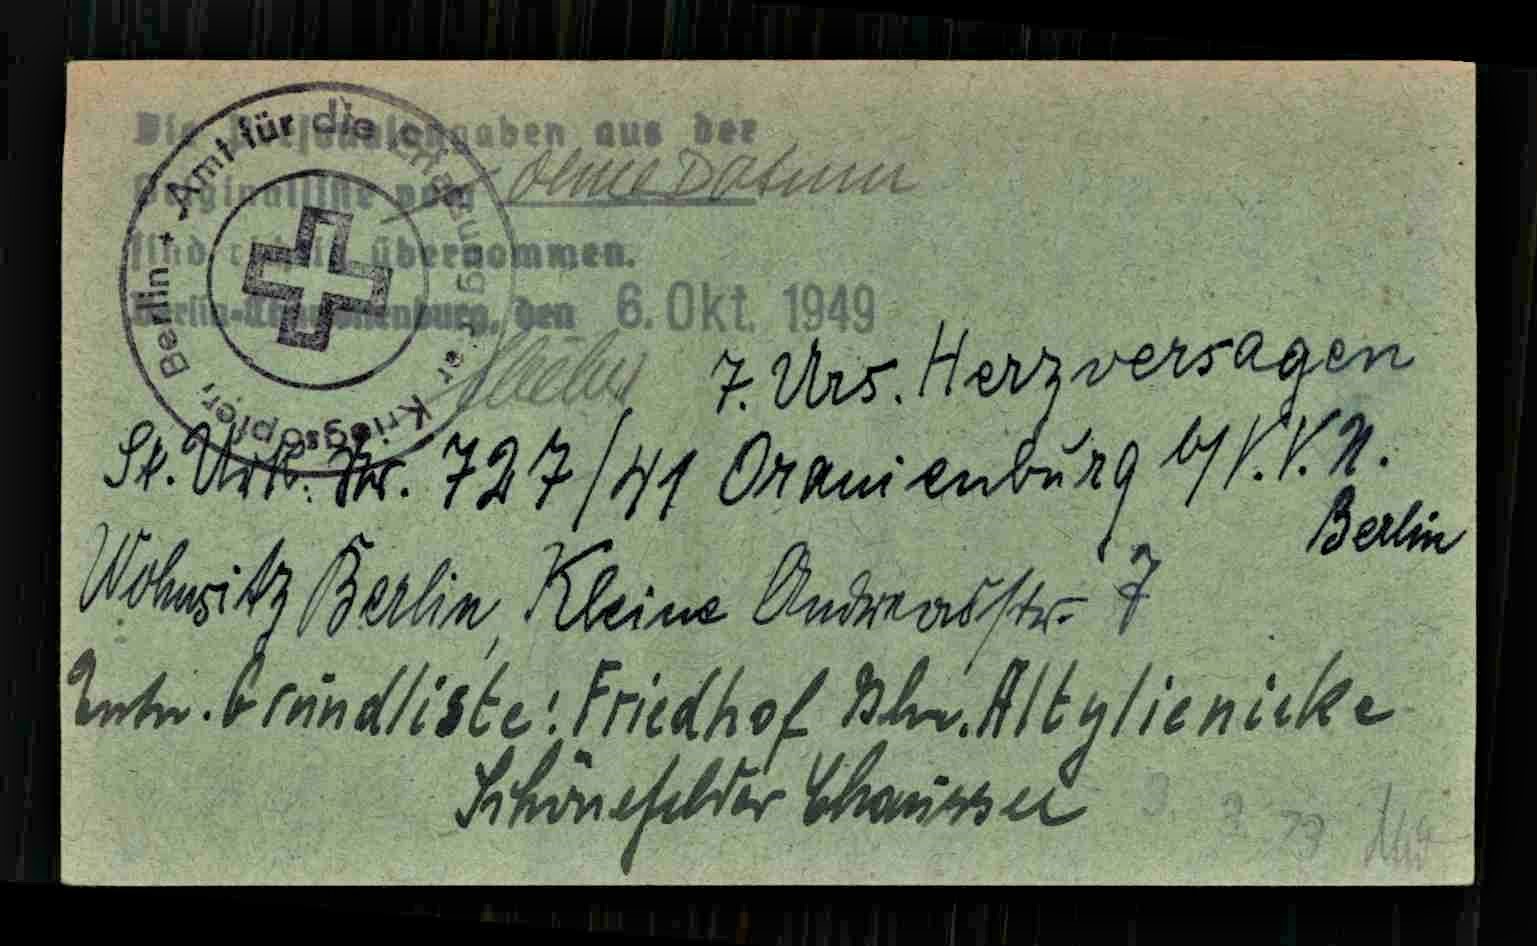 Die Personalangaben aus der
Originalliste vom ohne Datum
sind richtig übernommen.
Berlin-Charlottenburg, den 6. Okt. 1949
Amt für die Erfassung der Kriegsopfer, Berlin +
7. Urs. Herzversagen
St. Urk. Nr. 727/41 Oranienburg b/V.V.N.
Berlin
Wohnsitz Berlin, Kleine Andreasstr. 7
Entn. Grundliste: Friedhof Bln. Altglienicke
Schönefelder Chaussee
3. 3. 79